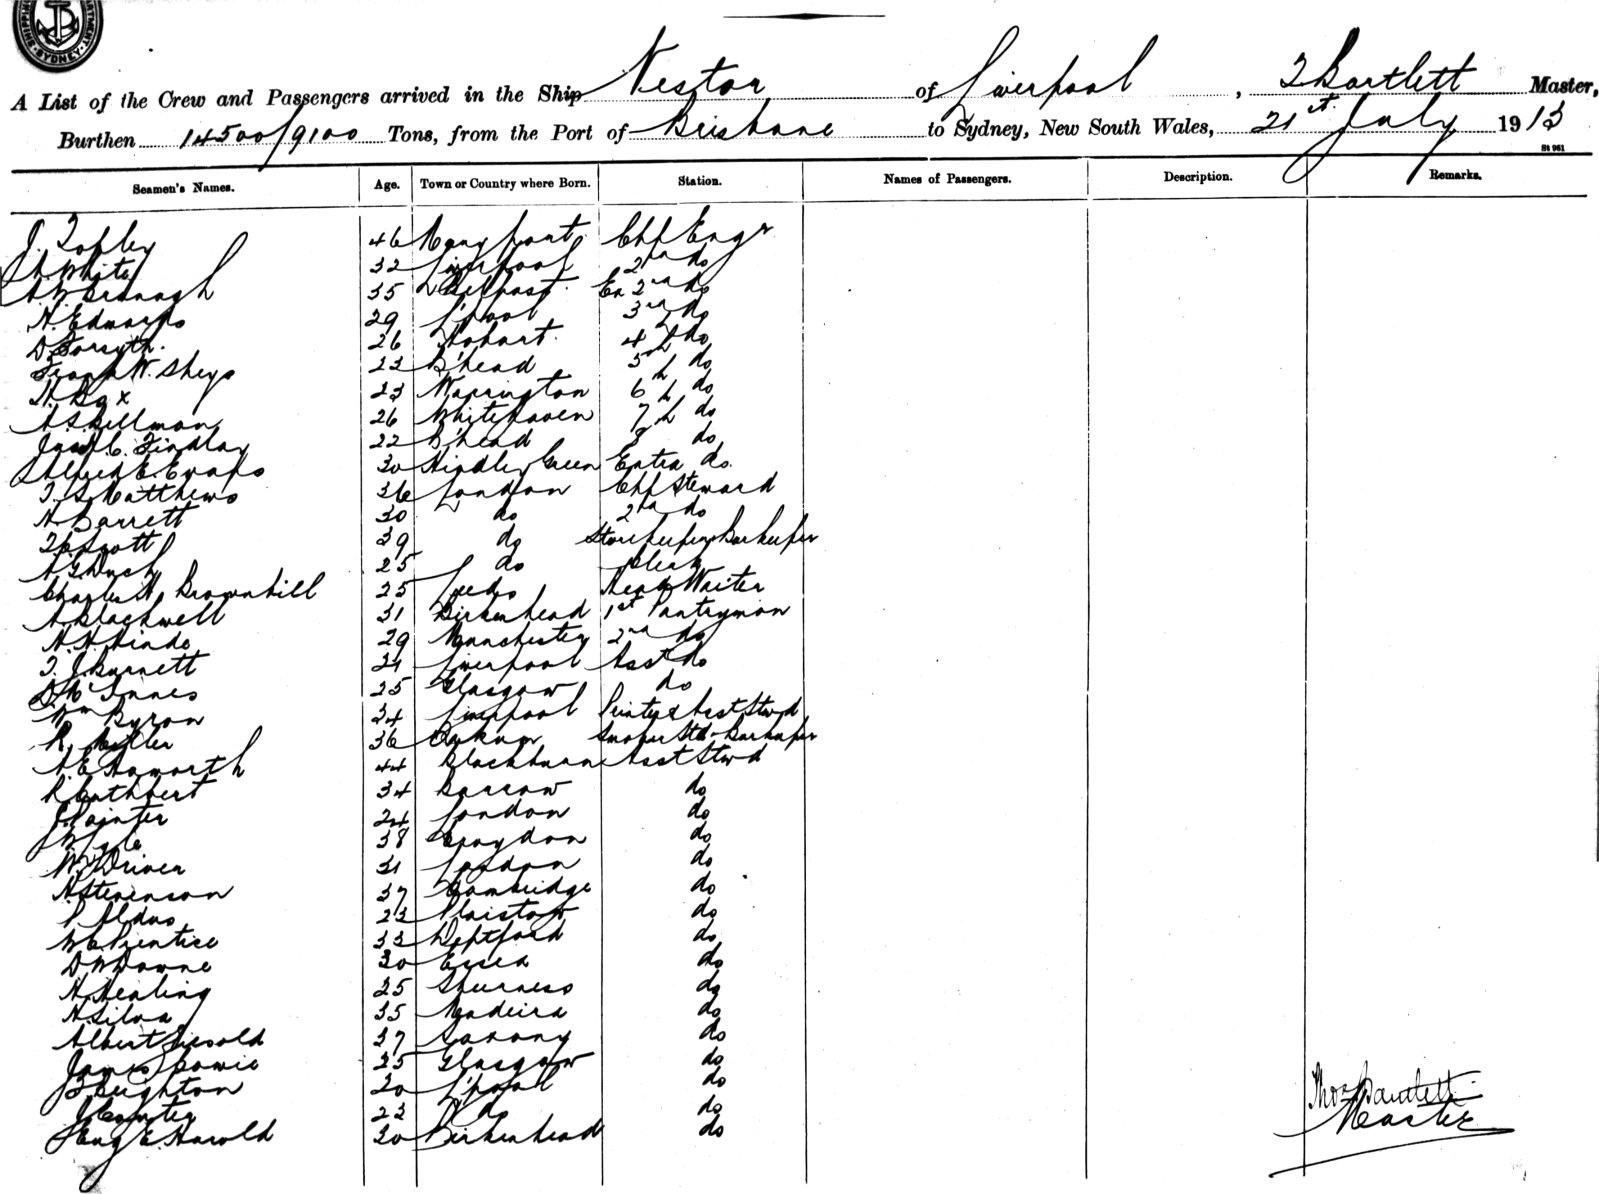 SHIPPING DEPARTMENT SYDNEY
A List of the Crew and Passengers arrived in the Ship Nestor of Liverpool, T Bartlett Master,
Burthen 14500/9100 Tons, from the Port of Brisbane to Sydney, New South Wales, 21st July 1913
St 961
Seamen's Names. Age. Town or Country where Born. Station. Names of Passengers. Description. Remarks.
J. Topley 46 Maryport Chf Engr
A. White 32 Liverpool 2nd do
35 Belfast Ex 2nd do
H. Edwards 29 L'pool 3rd do
D. Forsyth 26 Hobart 4th do
Frank W. 22 B'head 5th do
H. Box 23 Warrington 6th do
A. Skillman 26 Whitehaven 7th do
C. Findlay 22 B'head 8 do
Alfred E. Evans 30 Hindley Green Extra do.
T. S. Matthews 36 London Chf Steward
H. Barrett 30 do 2nd do
Scott 39 do Storekeeper Barkeeper
25 do Clerk
Charles H. Brownhill 25 Leeds Head Waiter
A Blackwell 31 Birkenhead 1st Pantryman
H. H. Hinde 29 Manchester 2nd do
T. J. Burnett 21 Liverpool Asst do
D. McInnes 25 Glasgow do
Wm Byron 34 Liverpool Printer & Asst Stwd
R. Miller 36 Barkeeper
A E Haworth 44 Blackburn Asst Stwd
R Cuthbert 34 Barrow do
J. Painter 24 London do
38 Croydon do
W. Driver 31 London do
H Stevenson 37 Cambridge do
P. Aldus 23 Plaistow do
W C Prentice 33 Deptford do
D. W Downe 30 Essex do
H Healing 25 Sheerness do
H. Silva 35 Madeira do
Albert 37 Saxony do
James Bowie 25 Glasgow do
Leighton 20 L'pool do
J Counter 22 do do
E. Harold 30 Birkenhead do
Thos Bartlett
Master